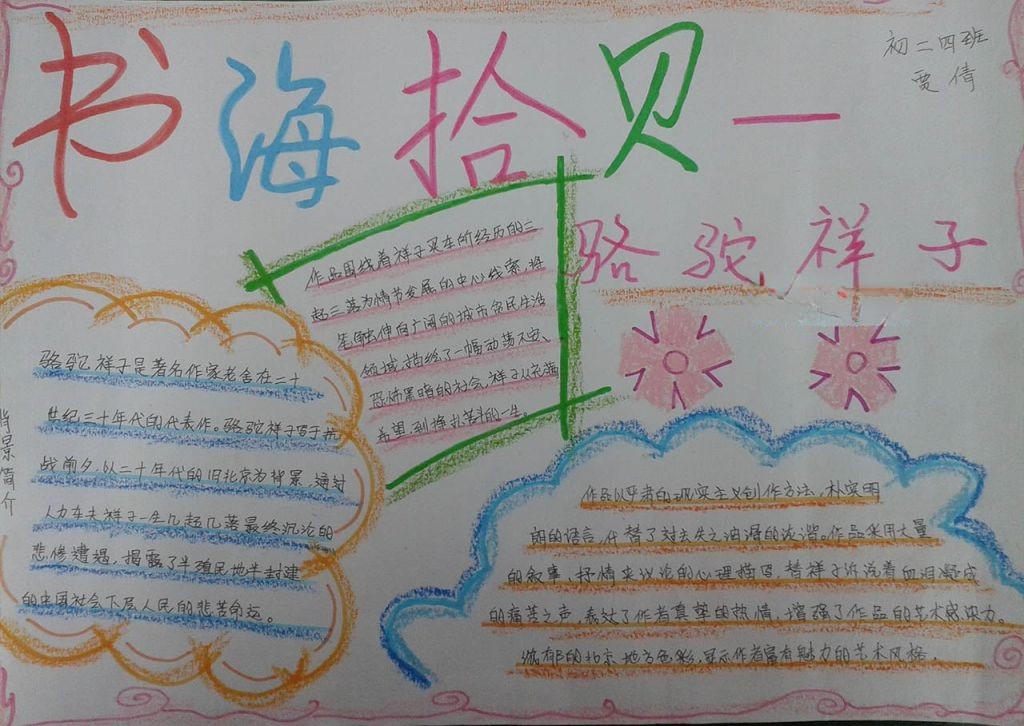 书海拾贝—
初二四班
贾倩
骆驼祥子
作品围绕着祥子买车的经历的三
起三落为情节发展的中心线索,将
笔触伸向广阔的城市贫民生活
领域,描绘了一幅动荡不安、
恐怖黑暗的社会,祥子从充满
希望,到挣扎苦斗的一生。
背景简介
骆驼祥子是著名作家老舍在二十
世纪三十年代的代表作。骆驼祥子写于抗
战前夕,以二十年代的旧北京为背景,通过
人力车夫祥子一生几起几落最终沉沦的
悲惨遭遇,揭露了半殖民地半封建
的中国社会下层人民的悲苦命运。
作品以严肃的现实主义创作方法,朴实明
朗的语言,代替了对去失之油滑的诙谐。作品采用大量
的叙事、抒情夹议论的心理描写替祥子诉说着血泪凝成
的痛苦之声,表达了作者真挚的热情,增强了作品的艺术感染力。
浓郁的北京地方色彩,显示作者富有魅力的艺术风格。